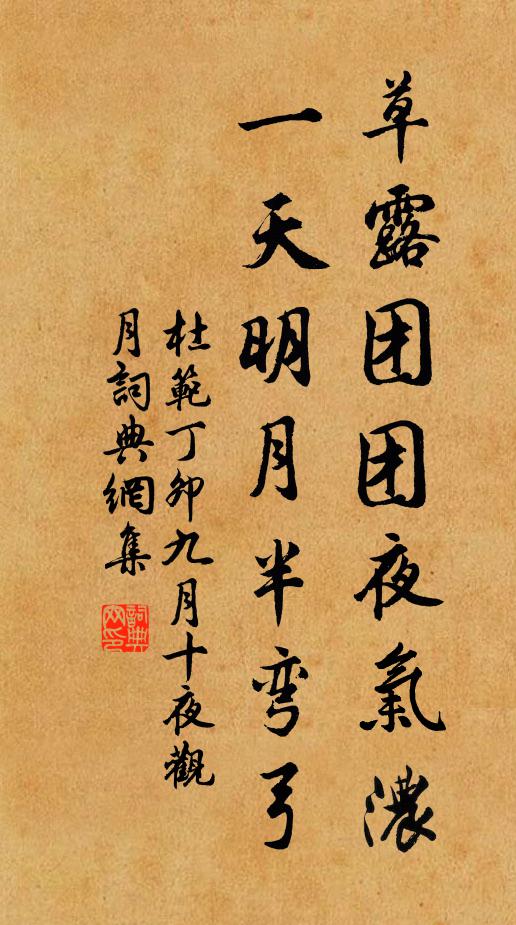 草露团团夜氣濃
一天明月半弯弓
杜範丁卯九月十夜觀
月詞典網集
詞典
网印